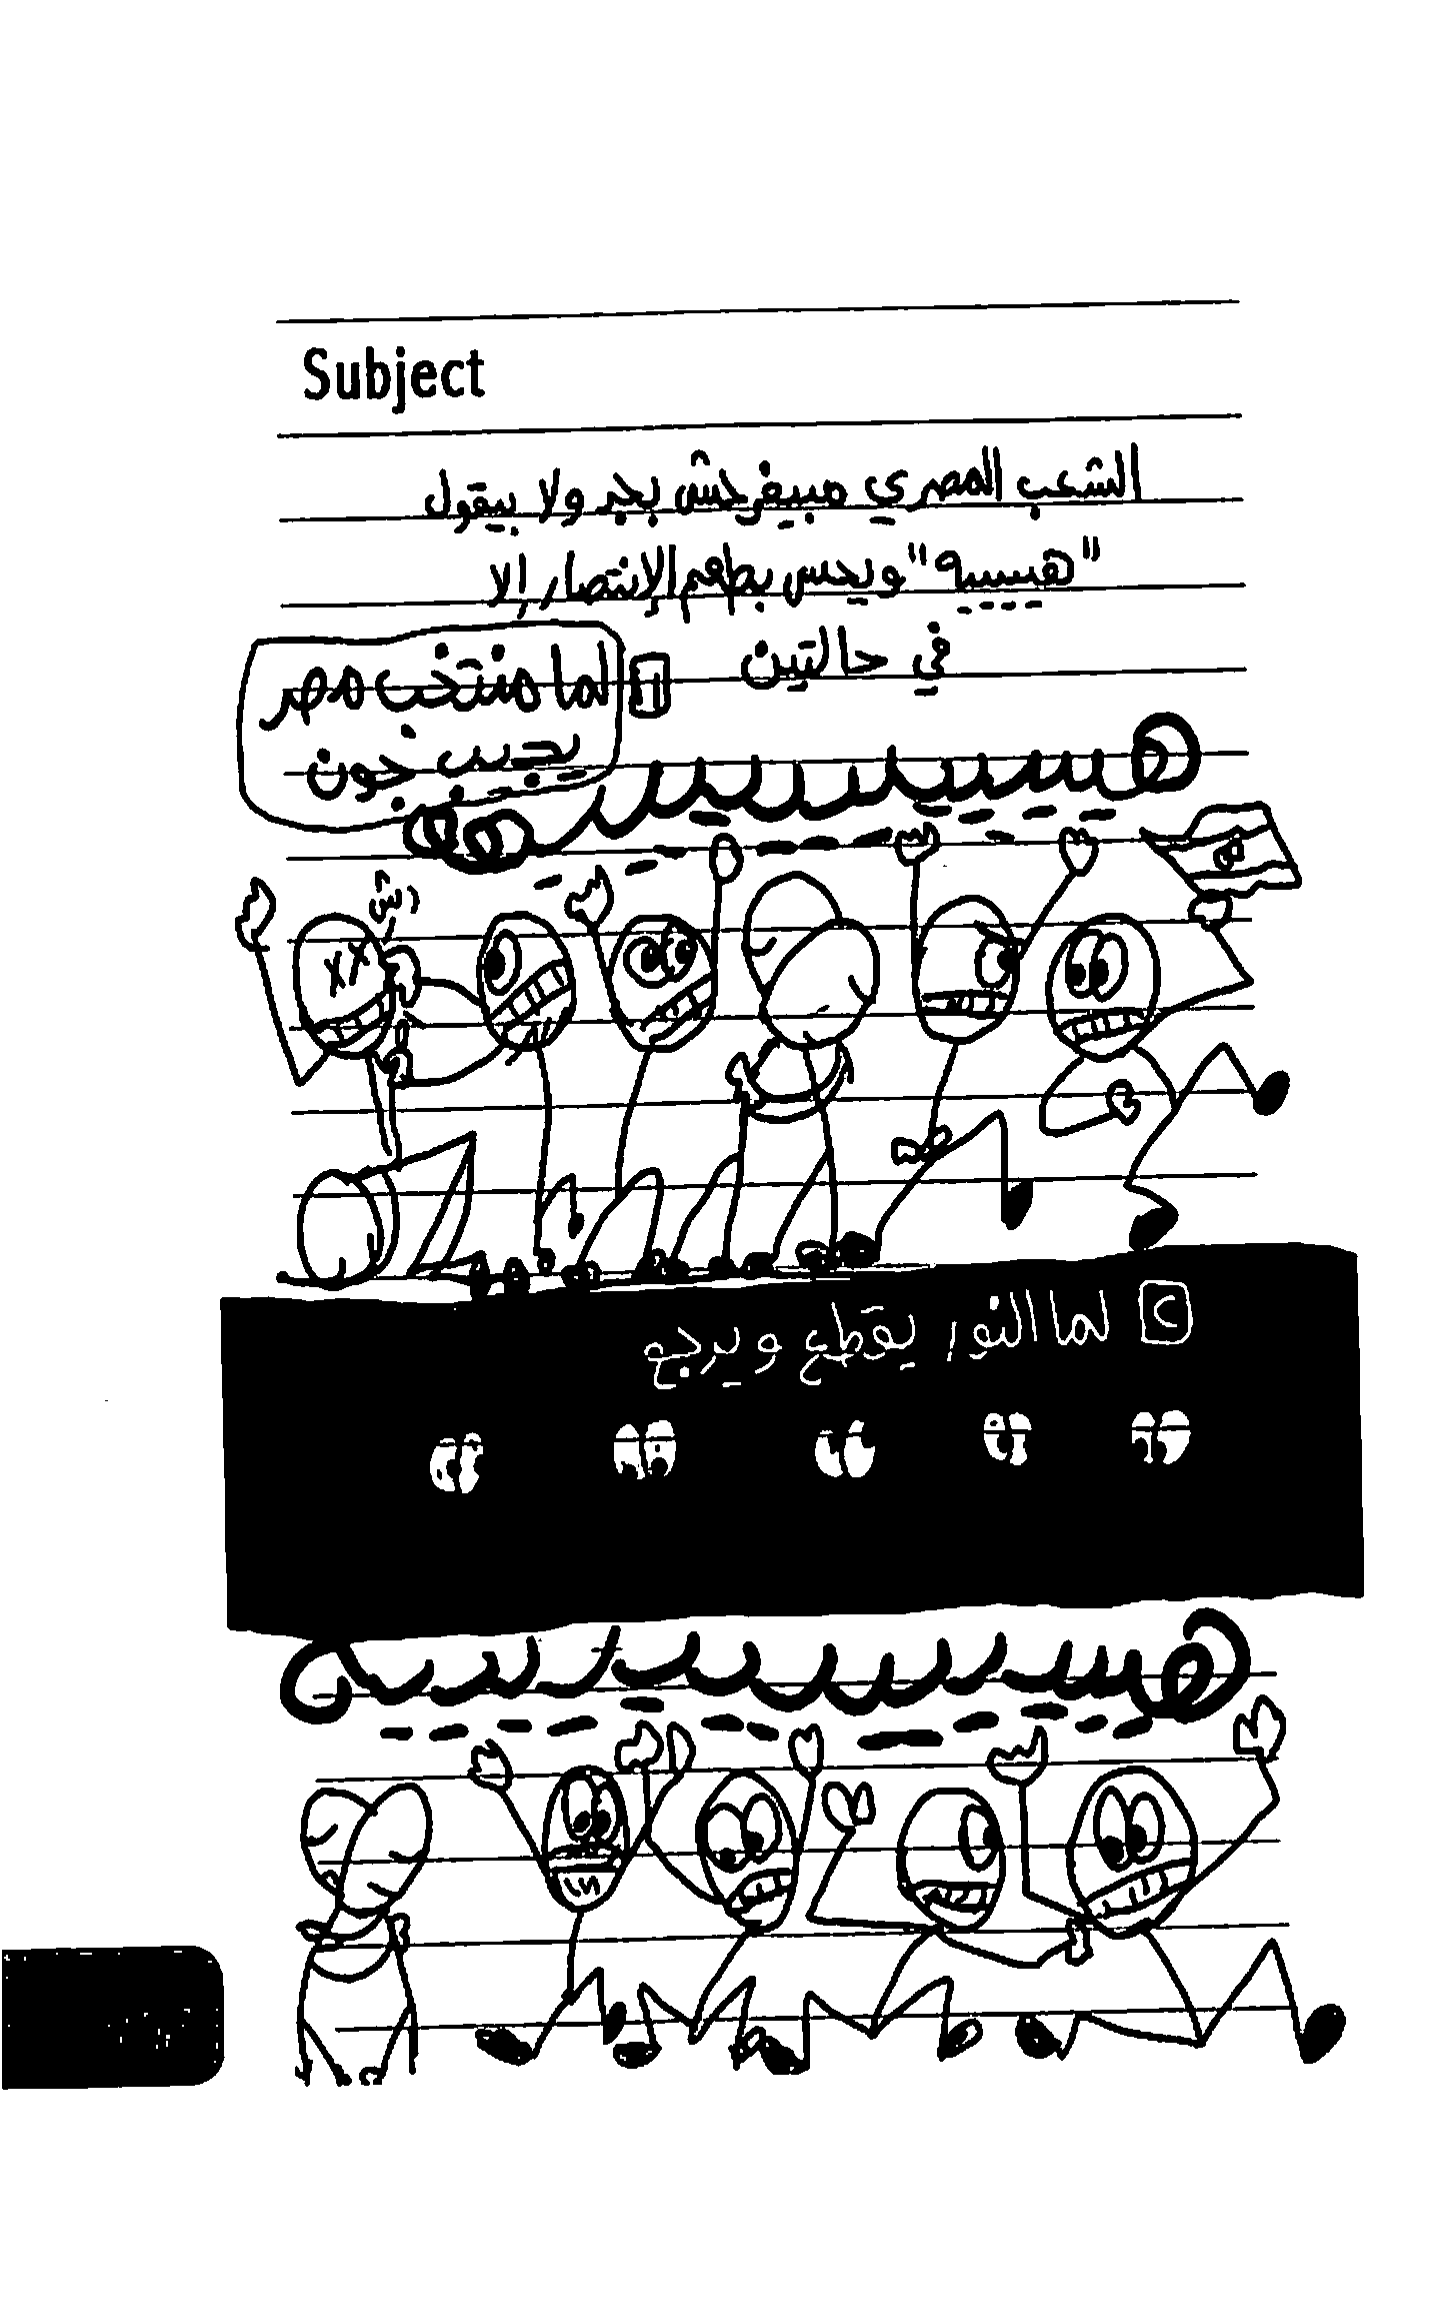 Subject
الشعب المصري مبيفرحش بجد ولا بيقول
"هيييييه" ويحس بطعم الإنتصار إلا
في حالتين
1 لما منتخب مصر
يجيب جون
هييييييييييه
رش
٢ لما النور يقطع ويرجع
هييييييييييييه